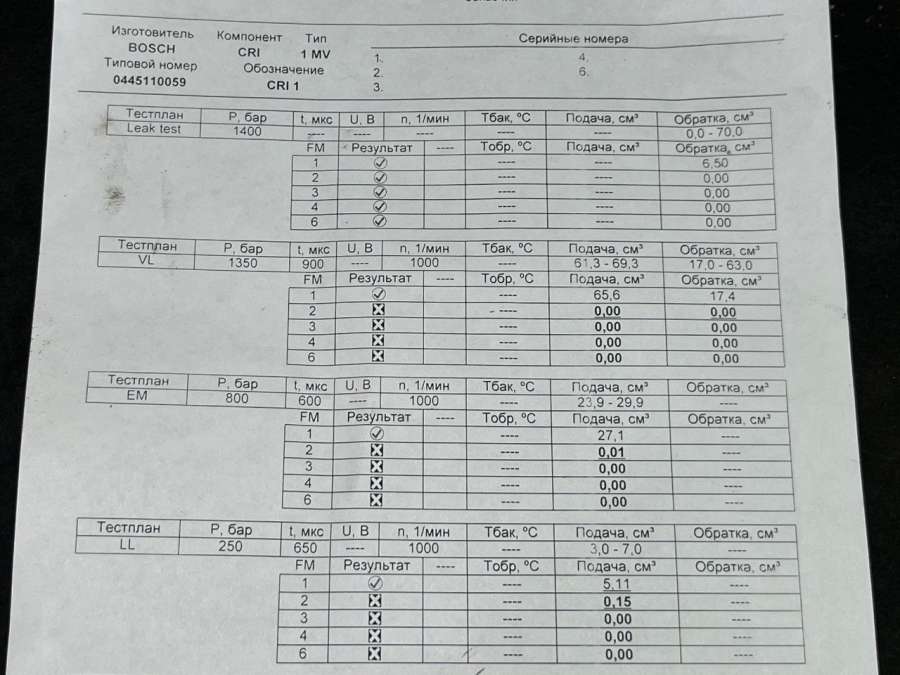 Изготовитель Компонент Тип Серийные номера
BOSCH CRI 1 MV 1. 4.
Типовой номер Обозначение 2. 6.
0445110059 CRI 1 3.
Тестплан P, бар t, мкс U, В n, 1/мин Тбак, ºС Подача, см³ Обратка, см³
Leak test 1400 ---- ---- ---- ---- ---- 0,0 - 70,0
FM Результат ---- Тобр, ºС Подача, см³ Обратка, см³
1 ---- ---- 6,50
2 ---- ---- 0,00
3 ---- ---- 0,00
4 ---- ---- 0,00
6 ---- ---- 0,00
Тестплан P, бар t, мкс U, В n, 1/мин Тбак, ºС Подача, см³ Обратка, см³
VL 1350 900 ---- 1000 ---- 61,3 - 69,3 17,0 - 63,0
FM Результат ---- Тобр, ºС Подача, см³ Обратка, см³
1 ---- 65,6 17,4
2 ---- 0,00 0,00
3 ---- 0,00 0,00
4 ---- 0,00 0,00
6 ---- 0,00 0,00
Тестплан P, бар t, мкс U, В n, 1/мин Тбак, ºС Подача, см³ Обратка, см³
EM 800 600 ---- 1000 ---- 23,9 - 29,9 ----
FM Результат ---- Тобр, ºС Подача, см³ Обратка, см³
1 ---- 27,1 ----
2 ---- 0,01 ----
3 ---- 0,00 ----
4 ---- 0,00 ----
6 ---- 0,00 ----
Тестплан P, бар t, мкс U, В n, 1/мин Тбак, ºС Подача, см³ Обратка, см³
LL 250 650 ---- 1000 ---- 3,0 - 7,0 ----
FM Результат ---- Тобр, ºС Подача, см³ Обратка, см³
1 ---- 5,11 ----
2 ---- 0,15 ----
3 ---- 0,00 ----
4 ---- 0,00 ----
6 ---- 0,00 ----